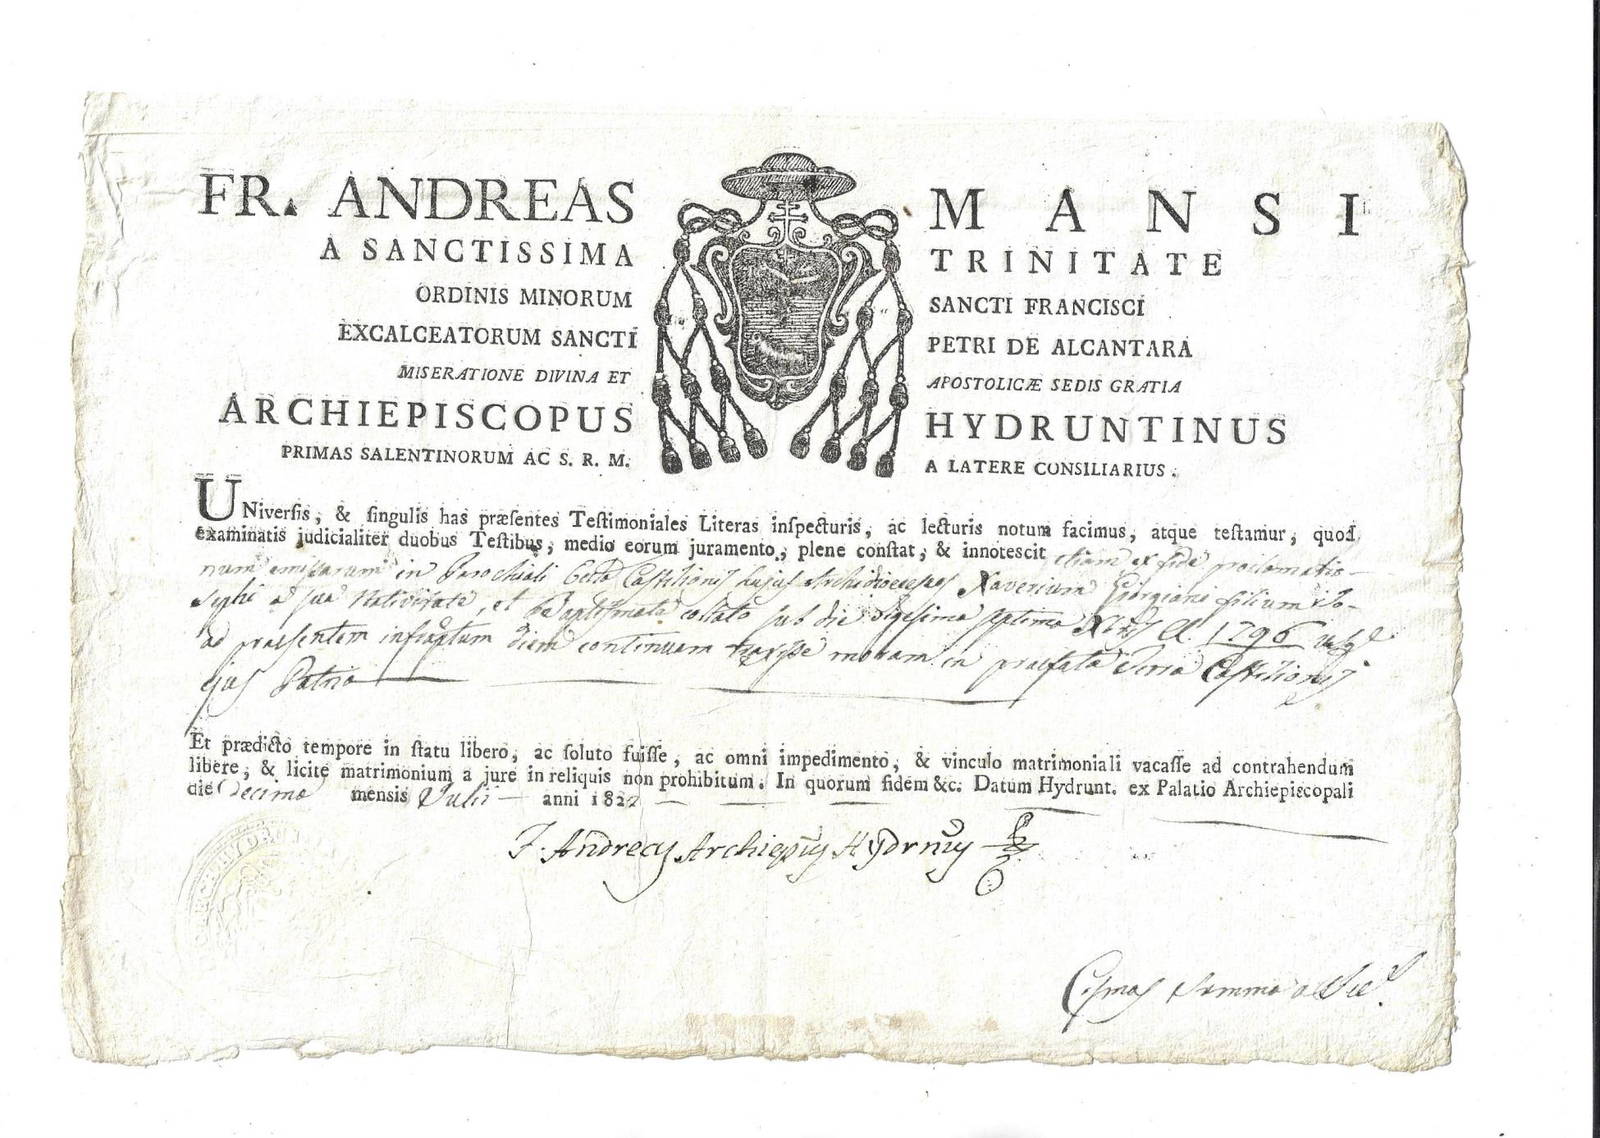 FR. ANDREAS MANSI
A SANCTISSIMA TRINITATE
ORDINIS MINORUM SANCTI FRANCISCI
EXCALCEATORUM SANCTI PETRI DE ALCANTARA
MISERATIONE DIVINA ET APOSTOLICÆ SEDIS GRATIA
ARCHIEPISCOPUS HYDRUNTINUS
PRIMAS SALENTINORUM AC S. R. M. A LATERE CONSILIARIUS.
UNiverſis, & ſingulis has præſentes Teſtimoniales Literas inſpecturis, ac lecturis notum facimus, atque teſtamur, quod
examinatis judicialiter duobus Teſtibus, medio eorum juramento, plene conſtat, & innoteſcit etiam ex fide proclamatio-
num emissarum in Parochiali Castilionis hujus Archidioecesis Xaverium Giorgiani filium Jo-
sephi a sua Nativitate, et Baptismate collato sub die vigesima septima 1796
ad praesentem infraptum diem continuam traxisse moram in praefata Terra Castilionis
ejus Patria
Et prædicto tempore in ſtatu libero, ac ſoluto fuiſſe, ac omni impedimento, & vinculo matrimoniali vacaſſe ad contrahendum
libere, & licite matrimonium a jure in reliquis non prohibitum. In quorum fidem &c. Datum Hydrunt. ex Palatio Archiepiscopali
die Decima mensis Julii anni 1822
F. Andreas Archiepus Hydrnus
Cosmas Summa